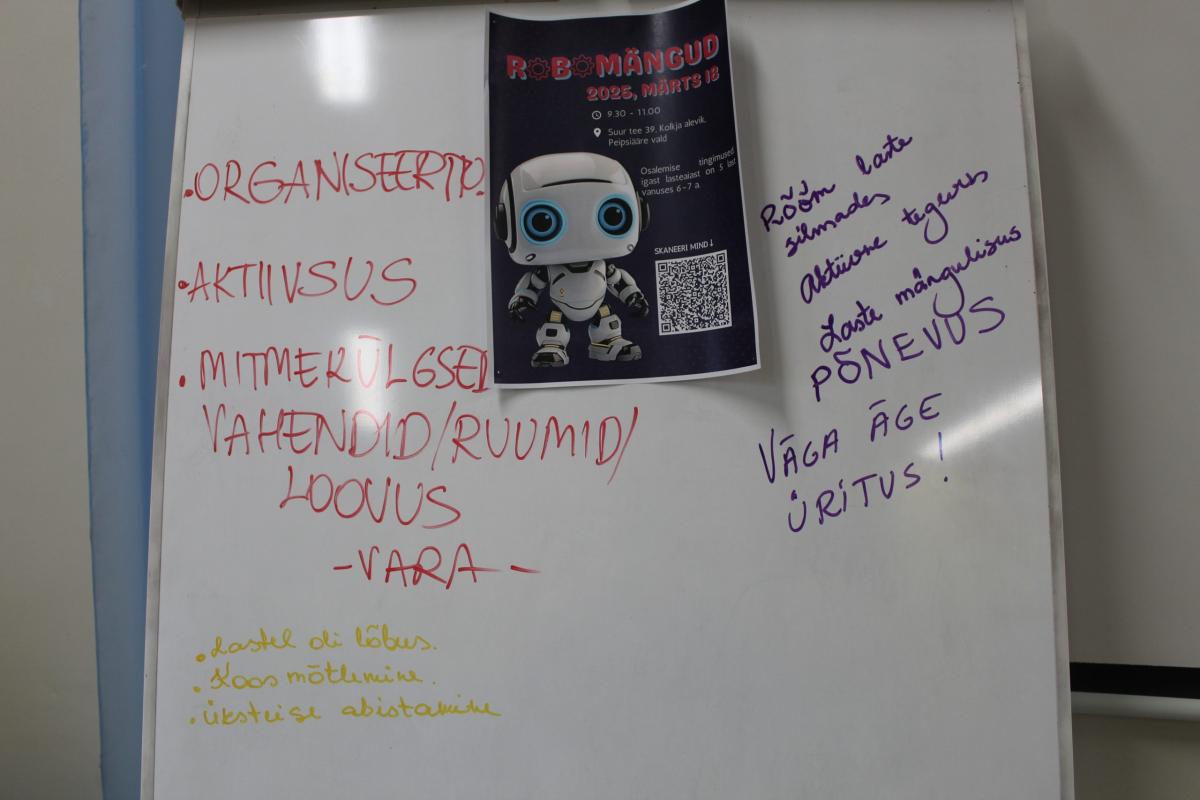 ROBOMÄNGUD
2025, MÄRTS 18
9.30 - 11.00
Suur tee 39, Kolkja alevik,
Peipsiääre vald
Osalemise tingimused
igast lasteaiast on 5 last
vanuses 6-7 a.
SKANEERI MIND↓
• ORGANISEERITD.
• AKTIIVSUS
• MITMEKÜLGSED
VAHENDID/RUUMID/
LOOVUS
-VARA-
• Lastel oli lõbus.
• Koos mõtlemine.
• üksteise abistamine
Rõõm laste
silmades
Aktiivne tegevus
Laste mängulisus
PÕNEVUS
VÄGA ÄGE
ÜRITUS!